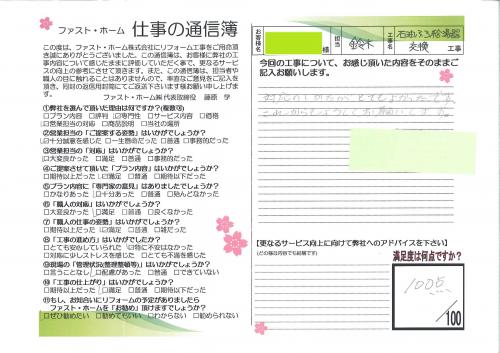 ファスト・ホーム 仕事の通信簿
この度は、ファスト・ホーム株式会社にリフォーム工事をご用命頂き誠にありがとうございました。
①弊社を選んで頂いた理由は何ですか?(複数可)
□プラン内容 □評判 □専門性 □サービス内容 □価格
□営業担当の対応 □商品説明 □当社の場所
②営業担当の「ご提案する姿勢」はいかがでしょうか?
□十分誠意を感じた □一生懸命だった □普通 □事務的だった
③営業担当の「対応」はいかがでしょうか?
□大変良かった □満足 □普通 □事務的だった
④ご提案させて頂いた「プラン内容」はいかがでしょうか?
□期待以上だった □満足 □普通 □期待以下だった
⑤プラン内容に「専門家の意見」はありましたでしょうか?
□かなりあった □十分あった □普通 □殆んどなかった
⑥「職人の対応」はいかがでしょうか?
□大変良かった □満足 □普通 □良くなかった
⑦「職人の仕事の姿勢」はいかがでしょうか?
□期待以上だった □満足 □普通 □雑だった
⑧「工事の進め方」はいかがでしたか?
□とても安心していられた □特に不安はなかった
□対処に少しストレスを感じた □とても不満を感じた
⑨現場の「管理状況(整理整頓等)」はいかがでしょうか?
□言うことなし □配慮があった □普通 □できていない
⑩「工事の仕上がり」はいかがでしょうか?
□期待以上だった □満足 □普通 □期待以下だった
⑪もし、お知合いにリフォームの予定がありましたらファスト・ホームを「お勧め」頂けますでしょうか?
□ぜひ勧めたい □勧めてもいい □わからない □勧められない
お客様名 様 担当 鈴木 工事名 石油ふろ給湯器交換 工事
今回の工事について、お感じ頂いた内容をそのままご記入お願いします。
対応のしかたがとてもよかったです
これからもよろしくお願いします
【更なるサービス向上に向けて弊社へのアドバイスを下さい】
(どの様な内容でも結構です)
満足度は何点ですか?
100点
/100